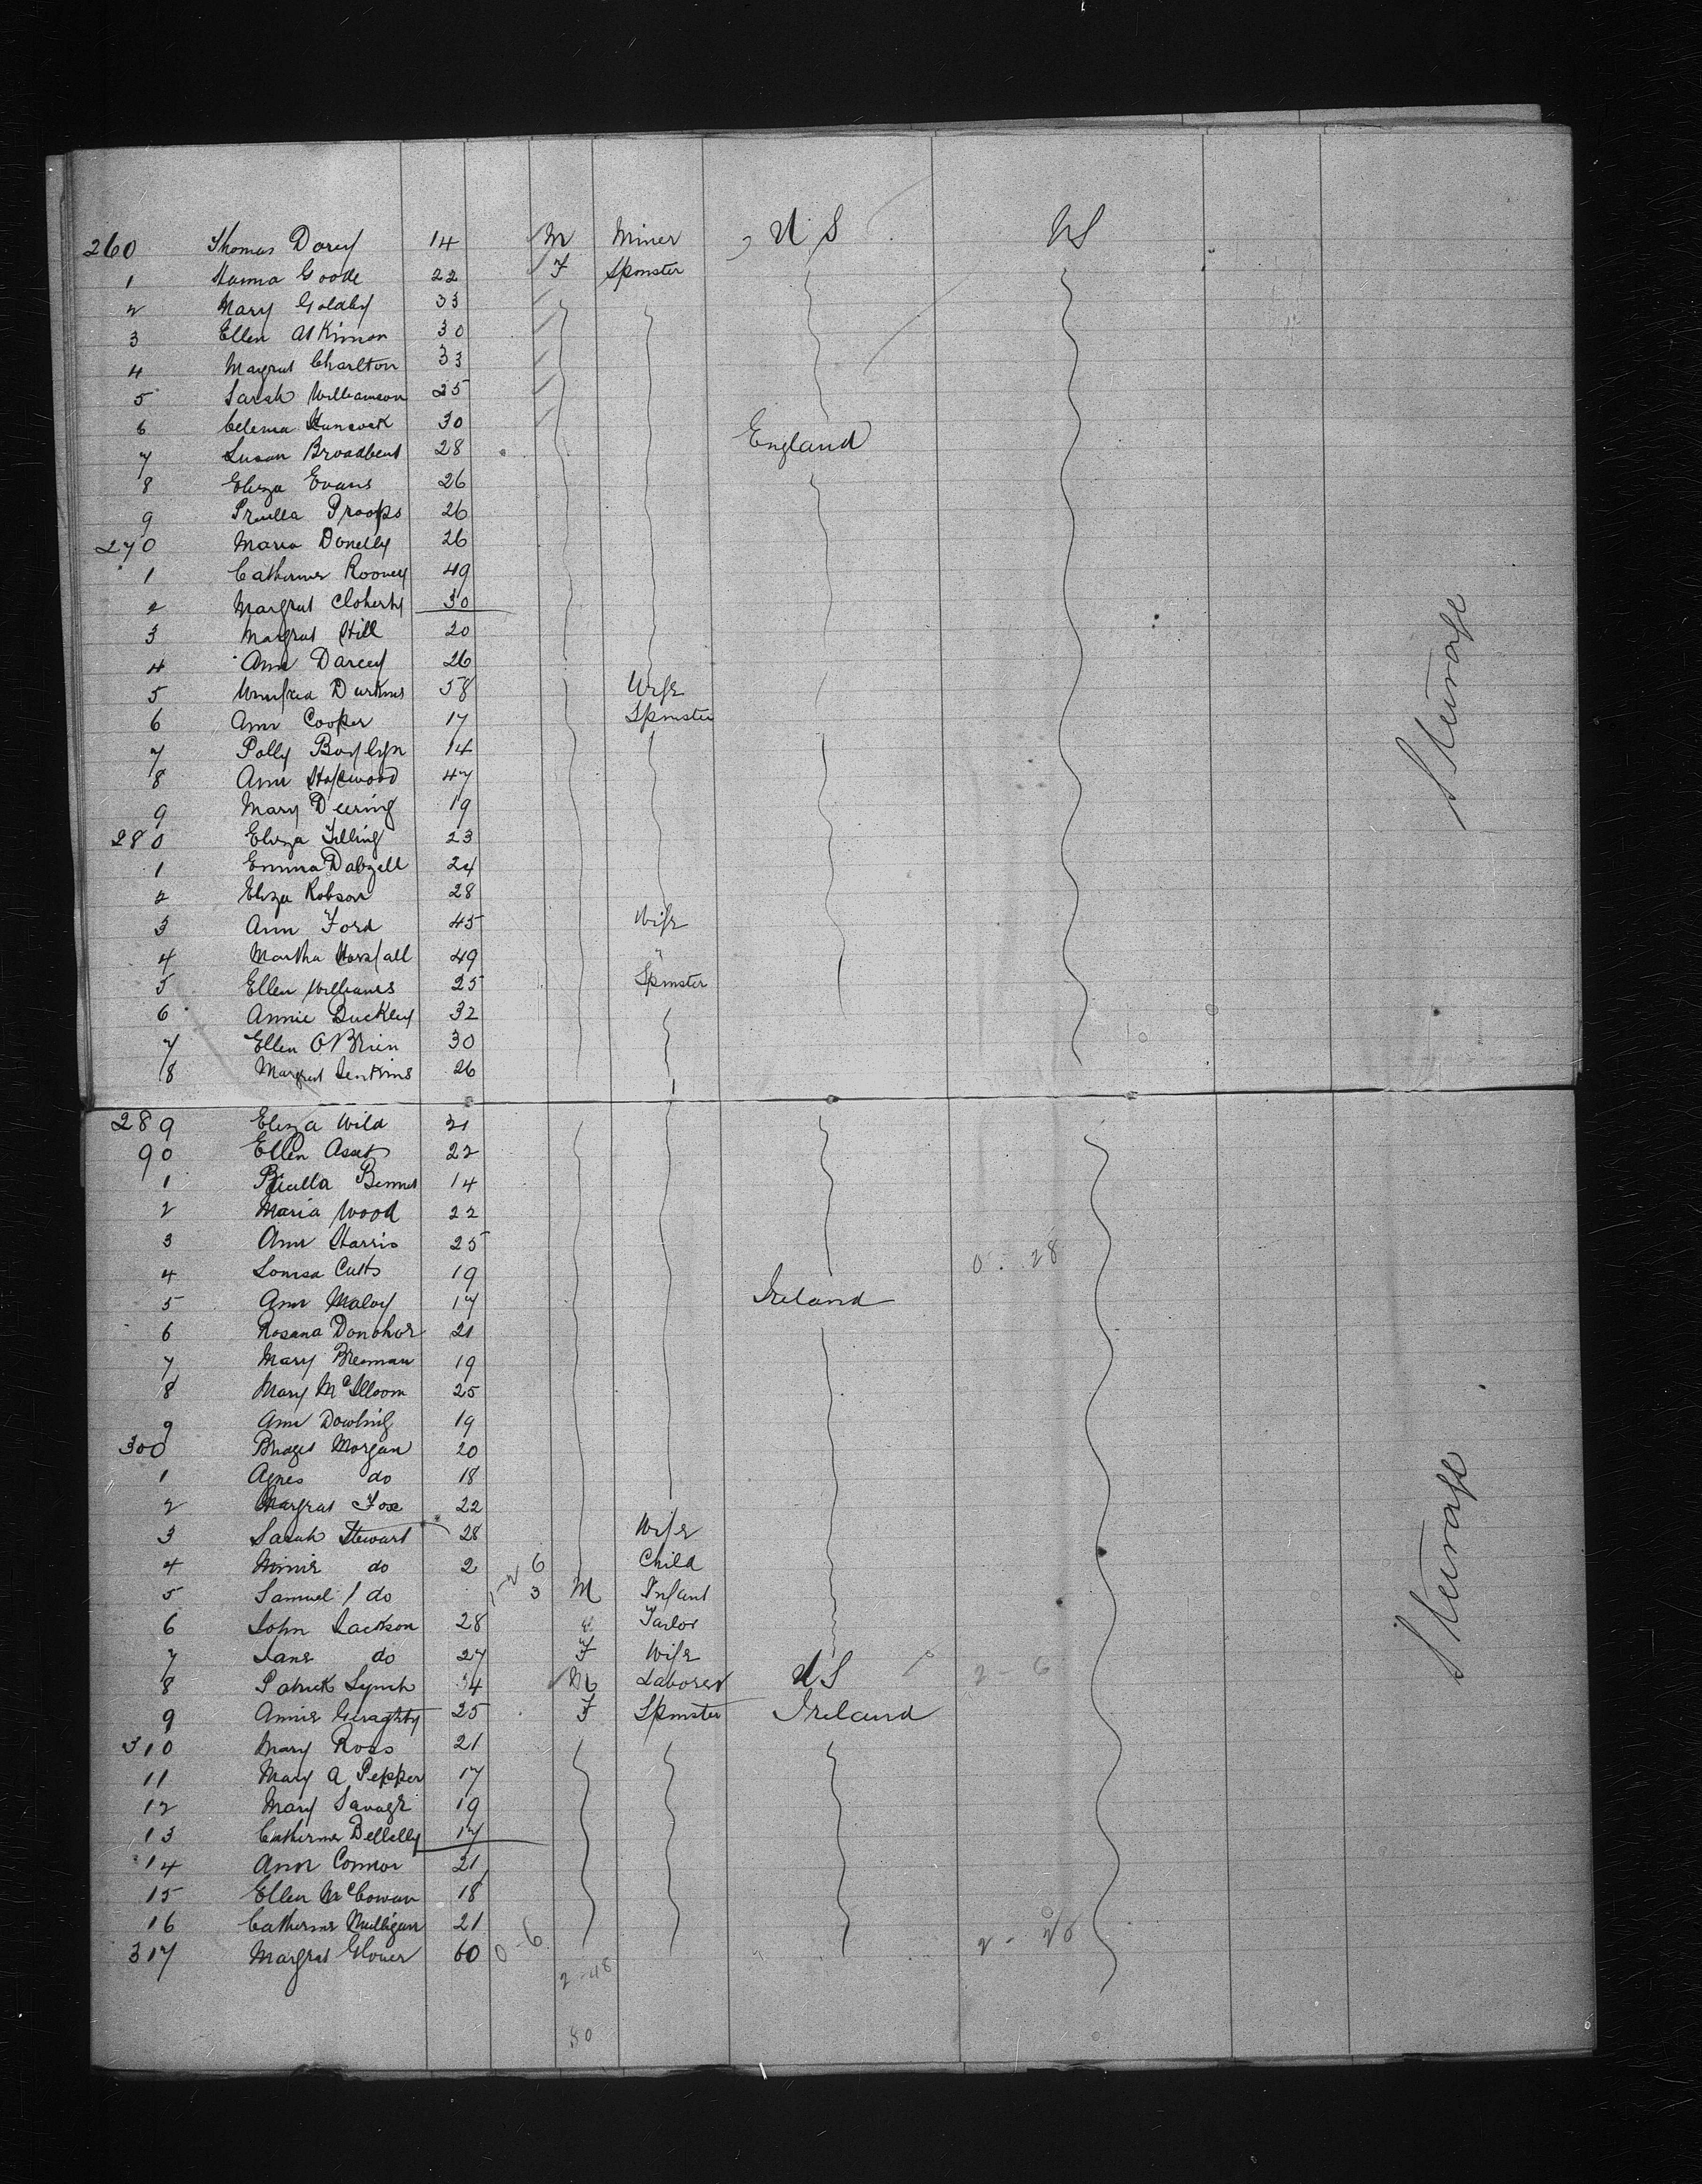 260 Thomas Darcy 14 M Miner U S US
1 Hanna Goode 22 F Spinster
2 Mary Goldby 33
3 Ellen Atkinson 30
4 Magrat Charlton 33
5 Sarah Williamson 25
6 Celema Hancock 30
7 Susan Broadbent 28 England
8 Eliza Evans 26
9 Proops 26
270 Maria Donelly 26
1 Catherine Rooney 49
2 Margrat Cloherty 30
3 Margrat Hill 20
4 Ann Darcey 26
5 Winifred Durkins 58 Wife
6 Ann Cooper 17 Spinster
7 Polly 14
8 Ann Hopwood 47
9 Mary Deering 19
280 Eliza Tilling 23
1 Emma Dalzell 24
2 Eliza Robson 28
3 Ann Ford 45 Wife
4 Martha Horsfall 49 "
5 Ellen Williams 25 Spinster
6 Annie Buckley 32
7 Ellen O'Brien 30
8 Margrat Jenkins 26
Steerage
289 Eliza Wild 21
90 Ellen 22
1 14
2 Maria Wood 22
3 Ann Harris 25
4 Louisa Cutts 19 0 . 28
5 Ann Maloy 17 Ireland
6 Rosana Donohoe 21
7 Mary Brennan 19
8 Mary 25
9 Ann Dowling 19
300 Bridget Morgan 20
1 Agnes do 18
2 Margrat Fox 22
3 Sarah Stewart 28 Wife
4 Minnie do 2 6 Child
5 Samuel do 3 M Infant
6 John Jackson 28 Tailor
7 Jane do 27 F Wife
8 Patrick Lynch 34 M Laborer U S 2 6
9 Annie Geraghty 25 F Spinster Ireland
310 Mary Ross 21
11 Mary A Pepper 17
12 Mary Savage 19
13 Catherine 17
14 Ann Connor 21
15 Ellen McGowan 18
16 Catherine Mulligan 21
317 Margrat Glover 60 0-6
2-48
80
Steerage